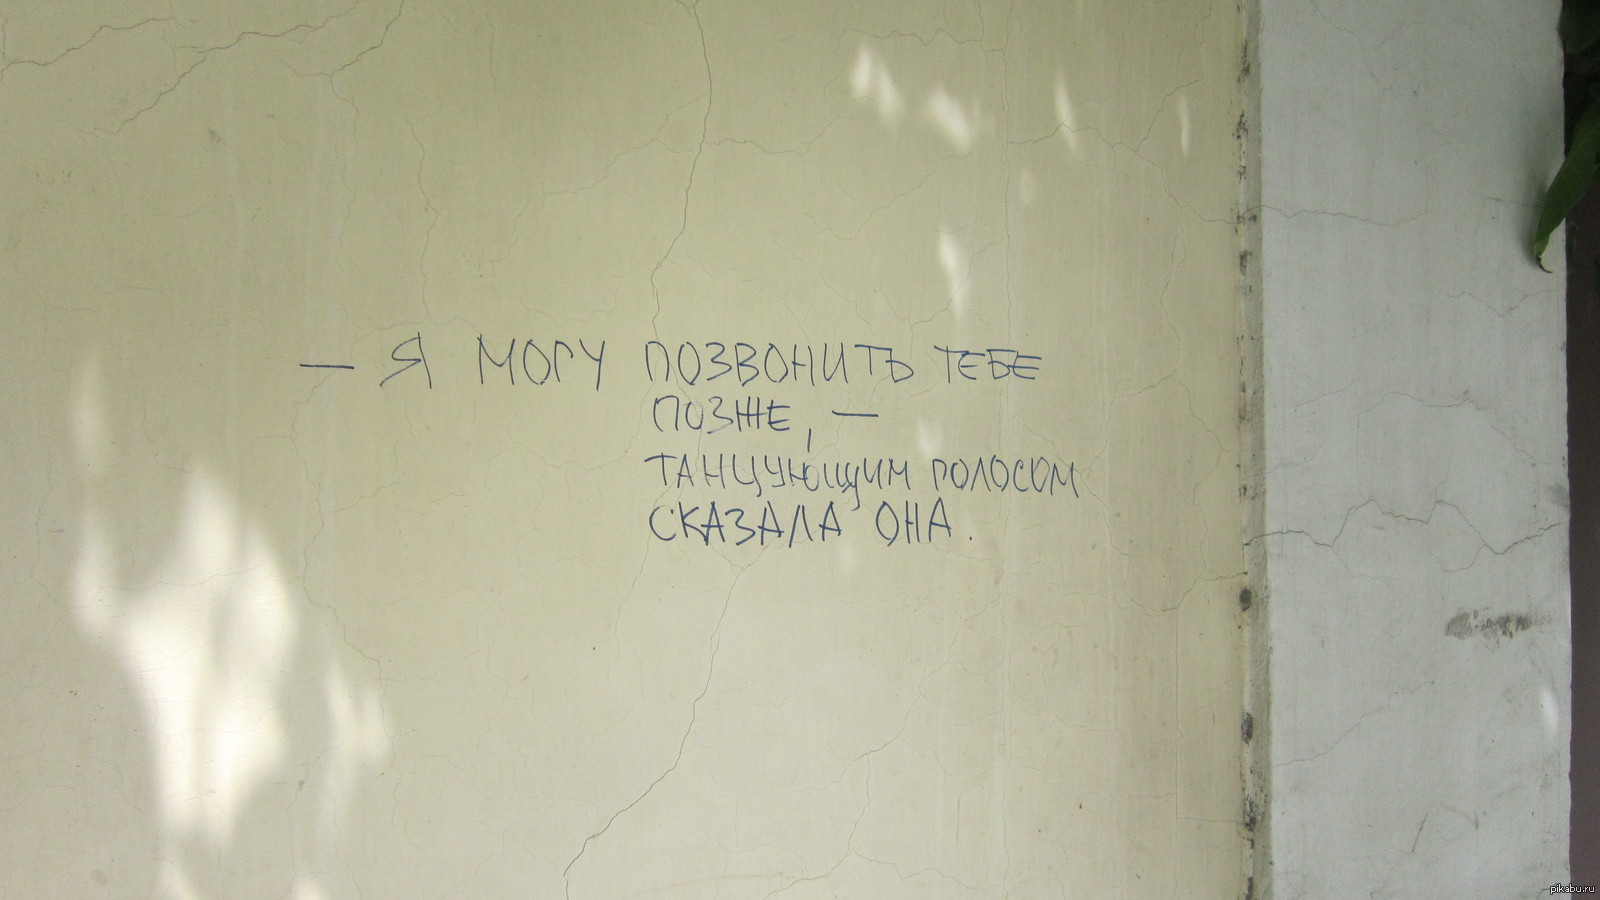 — Я МОГУ ПОЗВОНИТЬ ТЕБЕ
ПОЗЖЕ, —
ТАНЦУЮЩИМ ГОЛОСОМ
СКАЗАЛА ОНА.
pikabu.ru